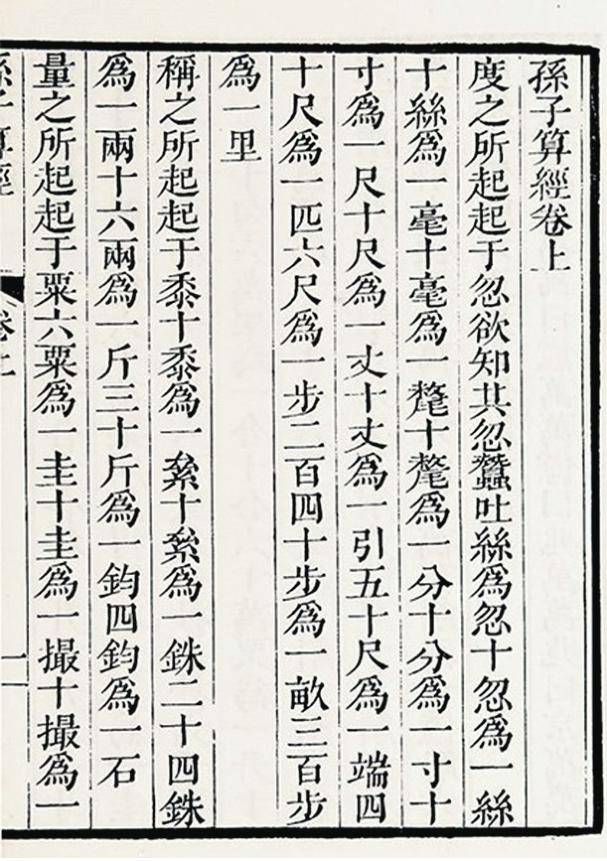 孫子算經卷上
度之所起起于忽欲知其忽蠶吐絲爲忽十忽爲一絲
十絲爲一毫十毫爲一氂十氂爲一分十分爲一寸十
寸爲一尺十尺爲一丈十丈爲一引五十尺爲一端四
十尺爲一匹六尺爲一步二百四十步爲一畝三百步
爲一里
稱之所起起于黍十黍爲一絫十絫爲一銖二十四銖
爲一兩十六兩爲一斤三十斤爲一鈞四鈞爲一石
量之所起起于粟六粟爲一圭十圭爲一撮十撮爲一
孫子算經 卷上 一